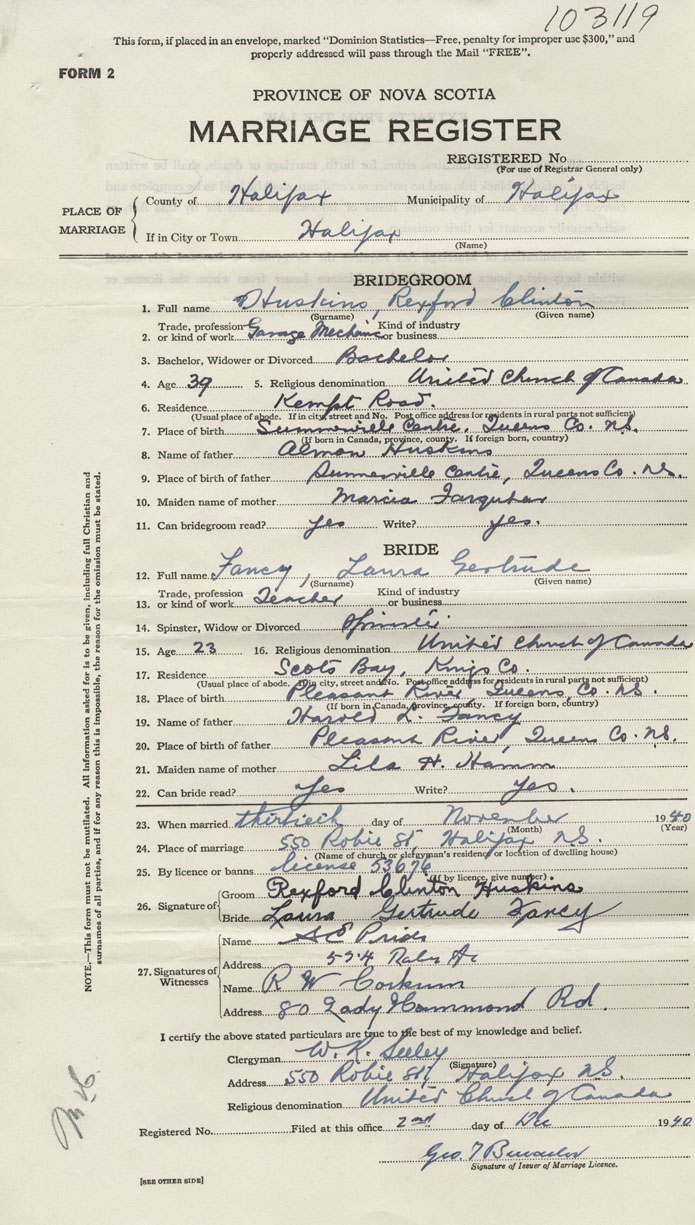 103119
This form, if placed in an envelope, marked "Dominion Statistics—Free, penalty for improper use $300," and
properly addressed will pass through the Mail "FREE".
FORM 2
PROVINCE OF NOVA SCOTIA
MARRIAGE REGISTER
REGISTERED No.
(For use of Registrar General only)
PLACE OF MARRIAGE
County of Halifax Municipality of Halifax
If in City or Town Halifax
(Name)
BRIDEGROOM
1. Full name Huskins, Rexford Clinton
(Surname) (Given name)
2. Trade, profession or kind of work Garage Mechanic Kind of industry or business
3. Bachelor, Widower or Divorced Bachelor
4. Age 39 5. Religious denomination United Church of Canada
6. Residence Kempt Road
(Usual place of abode. If in city, street and No. Post office address for residents in rural parts not sufficient)
7. Place of birth Summerville Centre, Queens Co. N.S.
(If born in Canada, province, county. If foreign born, country)
8. Name of father Almon Huskins
9. Place of birth of father Summerville Centre, Queens Co. N.S.
10. Maiden name of mother Marcia Farquhar
11. Can bridegroom read? yes Write? yes.
BRIDE
12. Full name Fancy, Laura Gertrude
(Surname) (Given name)
13. Trade, profession or kind of work Teacher Kind of industry or business
14. Spinster, Widow or Divorced Spinster
15. Age 23 16. Religious denomination United Church of Canada
17. Residence Scots Bay, Kings Co.
(Usual place of abode. If in city, street and No. Post office address for residents in rural parts not sufficient)
18. Place of birth Pleasant River, Queens Co. N.S.
(If born in Canada, province, county. If foreign born, country)
19. Name of father Harold L. Fancy
20. Place of birth of father Pleasant River, Queens Co. N.S.
21. Maiden name of mother Lila H. Hamm
22. Can bride read? yes Write? yes.
23. When married thirtieth day of November 1940
(Month) (Year)
24. Place of marriage 550 Robie St, Halifax N.S.
(Name of church or clergyman's residence or location of dwelling house)
25. By licence or banns license 53676
(If by licence, give number)
26. Signature of
Groom Rexford Clinton Huskins
Bride Laura Gertrude Fancy
27. Signatures of Witnesses
Name
Address
Name R W Corkum
Address 80 Lady Hammond Rd.
I certify the above stated particulars are true to the best of my knowledge and belief.
Clergyman W. R. Seeley
(Signature)
Address 550 Robie St, Halifax N.S.
Religious denomination United Church of Canada
Registered No. Filed at this office 2nd day of Dec 1940
Geo T
Signature of Issuer of Marriage Licence.
[SEE OTHER SIDE]
NOTE.—This form must not be mutilated. All information asked for is to be given, including full Christian and
surnames of all parties, and if for any reason this is impossible, the reason for the omission must be stated.